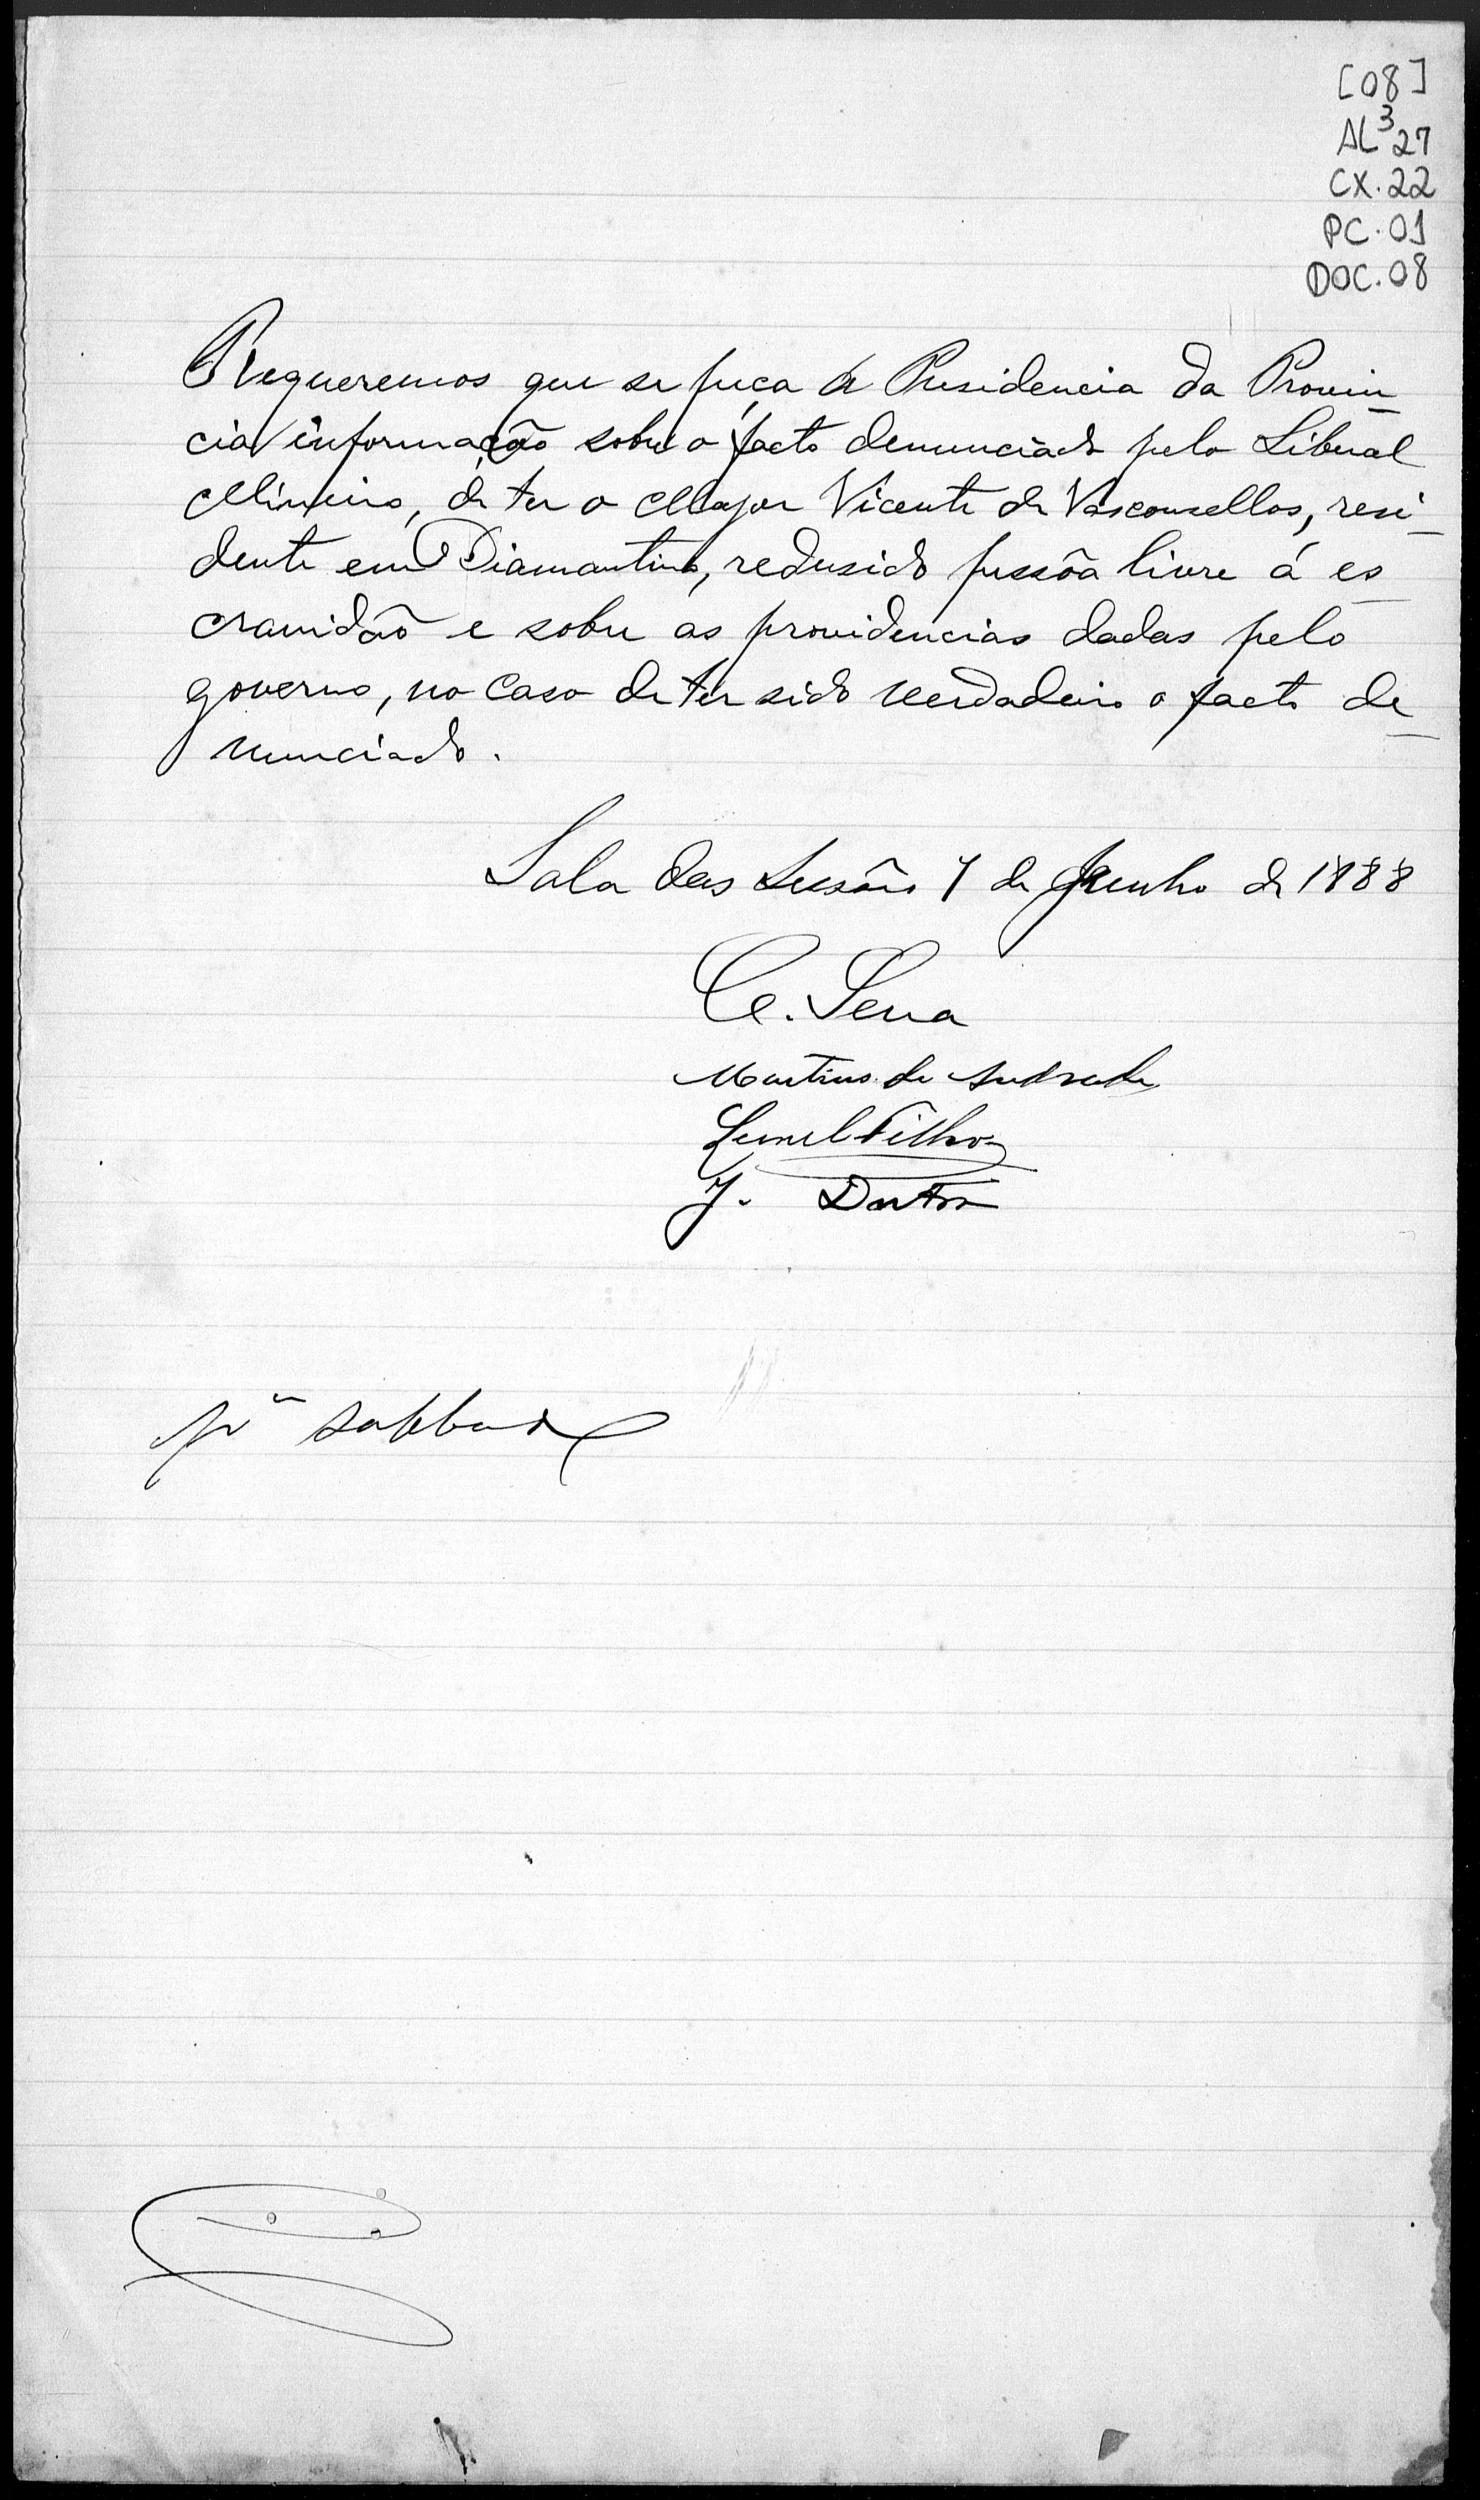 [08]
AL³27
CX.22
PC.01
DOC.08
Requeremos que se peça á Presidencia da Provin
cia informação sobre o facto denunciado pelo Liberal
Mineiro, de ter o Major Vicente de Vasconsellos, resi
dente em Diamantina, redusido pessôa livre á es
cravidão e sobre as providencias dadas pelo
governo, no caso de ter sido verdadeiro o facto de
nunciado.
Sala das Sessões 7 de Junho de 1888
C. Sena
Martins de Andrade
Lemel Filho
J. Dutra
pª sabbado